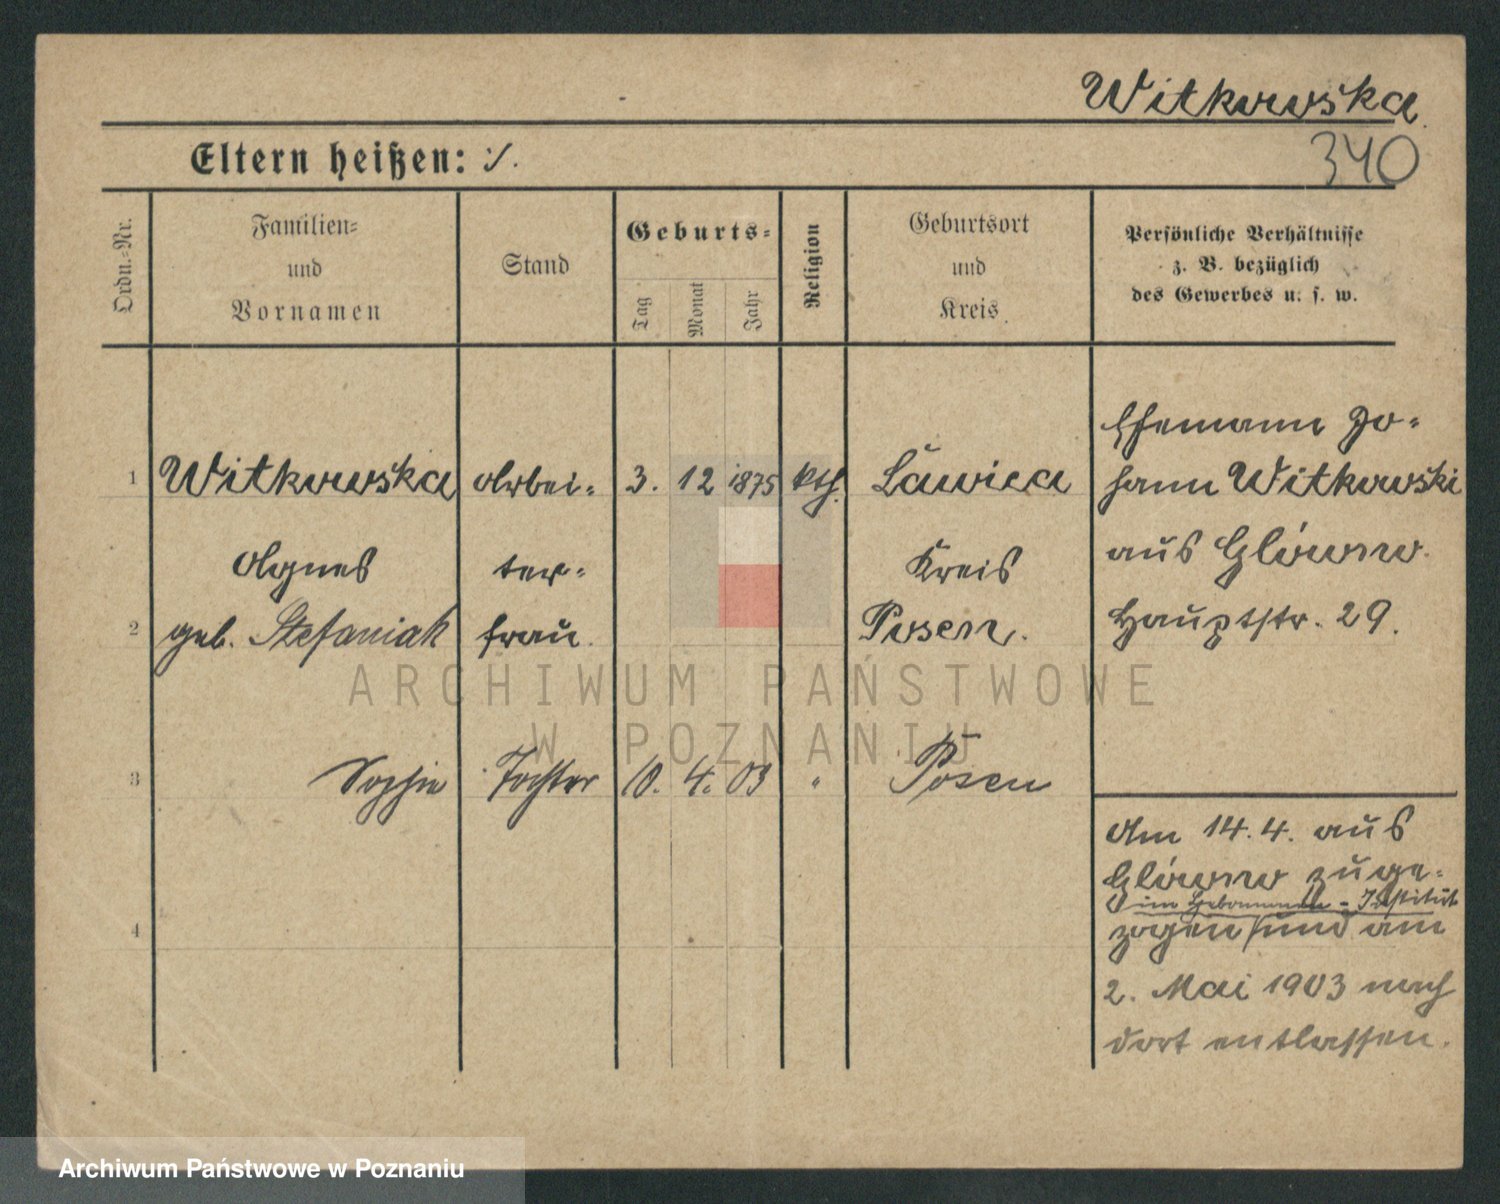 Witkowska
340
Eltern heißen: ·/.
Ordn.-Nr.
Familien-
und
Vornamen
Stand
Geburts-
Tag
Monat
Jahr
Religion
Geburtsort
und
Kreis
Persönliche Verhältnisse
z. B. bezüglich
des Gewerbes u. s. w.
1 Witkowska Arbei- 3. 12 1875 kth. Ławica
Agnes ter- Kreis
2 geb. Stefaniak frau. Posen.
Ehemann Jo-
hann Witkowski
aus Glówno.
Hauptstr. 29.
3 Sophie Tochter 10. 4. 03 " Posen
4
Am 14.4. aus
Glówno zuge-
im Hebammen-Institut
zogen und am
2. Mai 1903 nach
dort entlassen.
ARCHIWUM PAŃSTWOWE
W POZNANIU
Archiwum Państwowe w Poznaniu